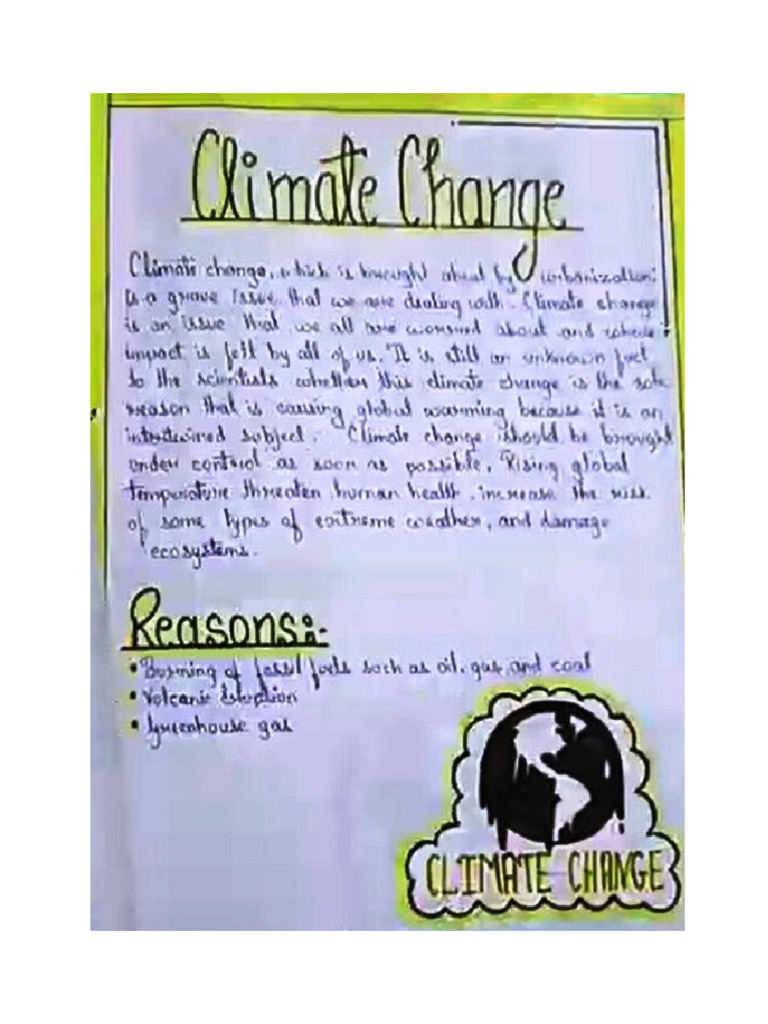 Climate Change
Climate change, which is brought about by urbanization;
is a grave issue that we are dealing with. Climate change
is an issue that we all are worried about and whose
impact is felt by all of us. It is still an unknown fact
to the scientists whether this climate change is the sole
reason that is causing global warming because it is an
intertwined subject. Climate change should be brought
under control as soon as possible. Rising global
temperature threaten human health, increase the risk
of some types of extreme weather, and damage
ecosystems.
Reasons:-
• Burning of fossil fuels such as oil, gas, and coal
• Volcanic Eruption
• Greenhouse gas
CLIMATE CHANGE